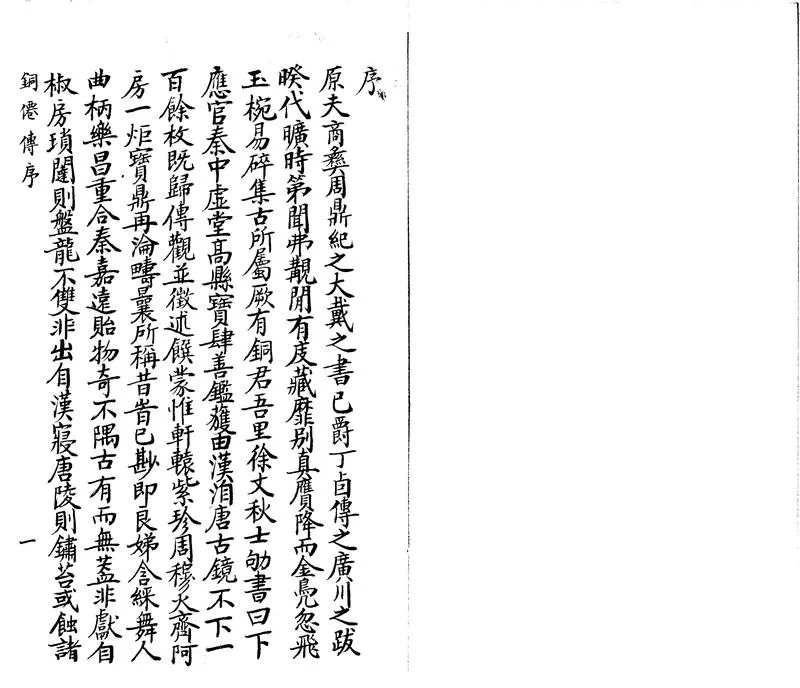 序
原夫商彝周鼎紀之大戴之書已爵丁卣傳之廣川之跋
暌代曠時第聞弗覯間有庋藏靡别真贋降而金鳧忽飛
玉椀易碎集古所屬厥有銅君吾里徐丈秋士劬書日下
應官秦中虛堂高縣寶肆善鑑獲由漢洎唐古鏡不下一
百餘枚既歸傳觀並徵述饌蒙惟軒轅紫珍周穆火齊阿
房一炬寶鼎再淪疇曩所稱昔峕已尠即良娣含綵舞人
曲柄樂昌重合秦嘉遠貽物奇不隅古有而無葢非獻自
椒房瑣闥則盤龍不雙非出自漢寢唐陵則鏽苔或蝕諸
銅僊傳序
一